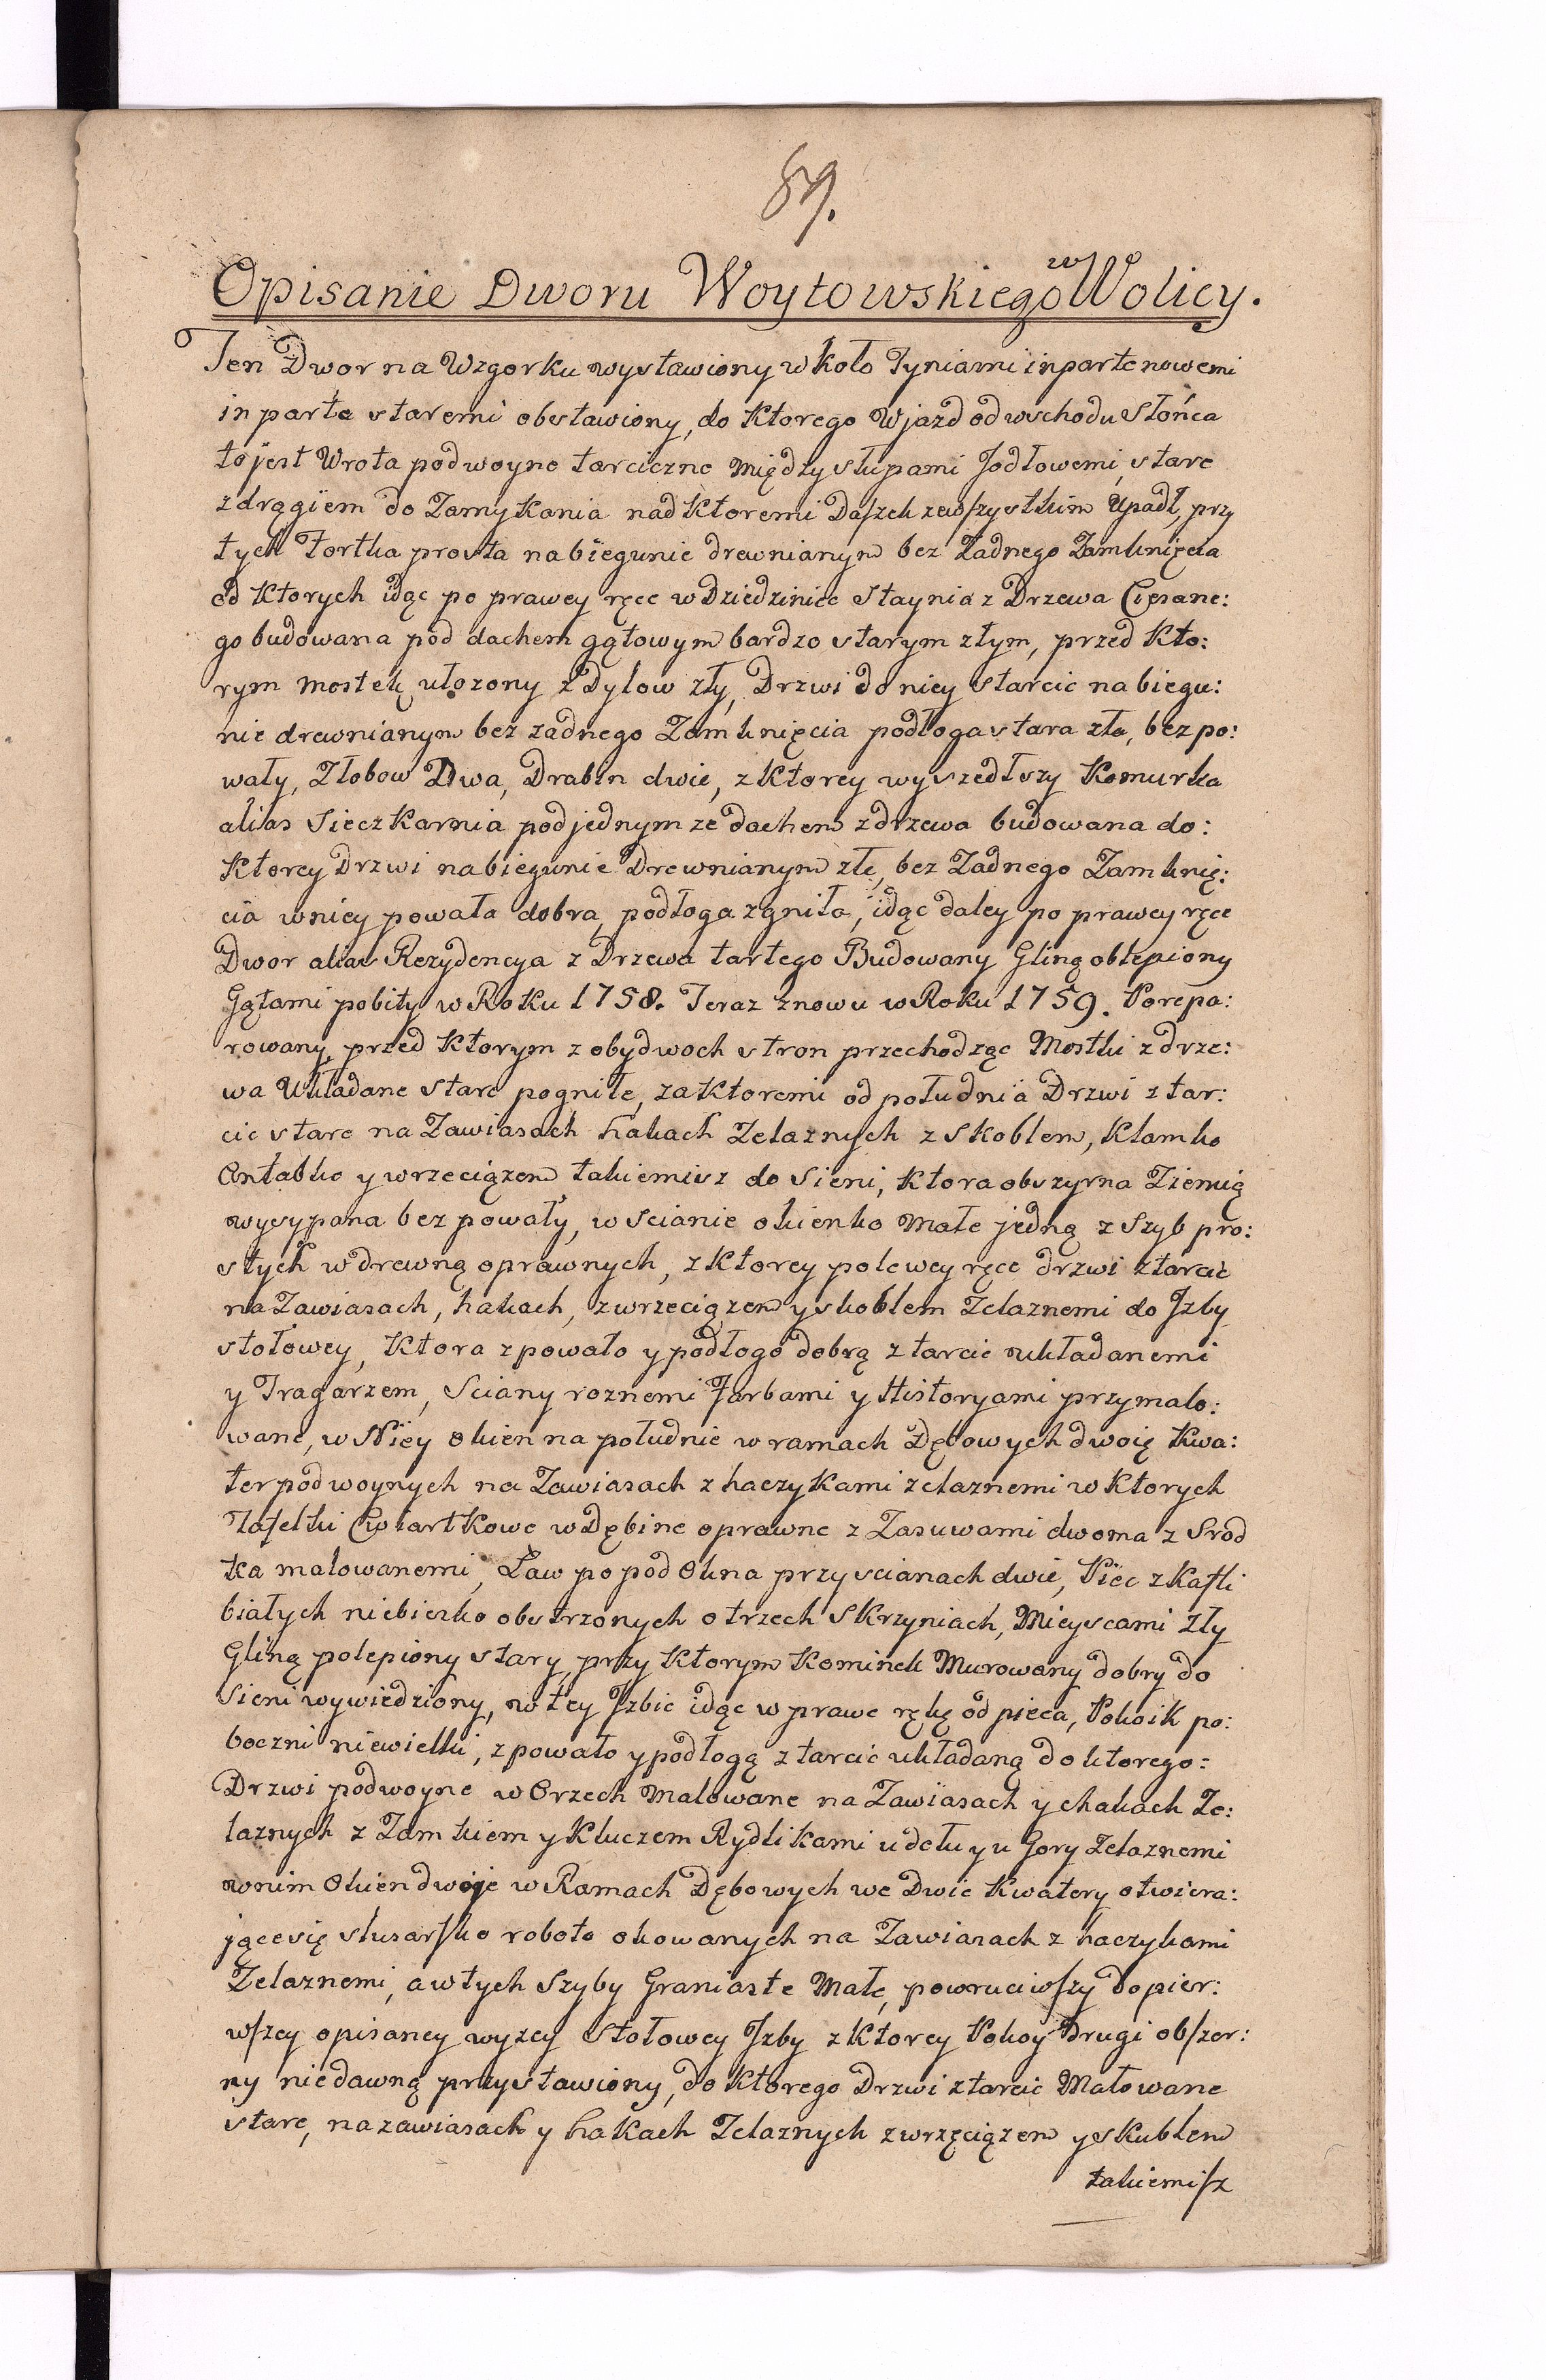 89.
Opisanie Dworu Woytowskiego w Wolicy.
Ten Dwor na Wzgorku wystawiony w koło Tyniami in parte nowemi
in parte staremi obstawiony, do Ktorego Wjazd od wschodu Słońca
to jest Wrota podwoyne tarciczne między słupami Jodłowemi, stare
z drągiem do Zamykania nad Ktoremi Daszek zewszystkim Upadł, przy
tych Fortka prosta na biegunie drewnianym bez Zadnego Zamknięcia
od Ktorych idąc po prawey ręce w Dziedziniec Staynia z Drzewa Ciesane:
go budowana pod dachem gątowym bardzo starym złym, przed Kto:
rym mostek ułozony z Dylow zły, Drzwi do niey z tarcic na biegu:
nie drewnianym bez zadnego Zamknięcia podłoga stara zła, bez po:
wały, Złobow Dwa, Drabin dwie, z Ktorey wyszedłszy Komurka
alias Sieczkarnia pod jednym ze dachem z drzewa budowana do:
Ktorey Drzwi na biegunie Drewnianym złe, bez Zadnego Zamknię:
cia w niey powała dobra, podłoga zgniła, idąc daley po prawey ręce
Dwor alias Rezydencya z Drzewa tartego Budowany Gliną oblepiony
Gątami pobity w Roku 1758. Teraz znowu w Roku 1759. Porepa:
rowany, przed Ktorym z obydwoch stron przechodząc Mostki z drze:
wa Układane stare pogniłe, za Ktoremi od południa Drzwi z tar:
cic stare na Zawiasach hakach Zelaznych z Skoblem, Klamko
Antabko y wrzeciązem takiemisz do Sieni, Ktora obszyrna Ziemią
wysypana bez powały, w Scianie okienko Małe jedną z Szyb pro:
stych w drewną oprawnych, z Ktorey po lewey ręce drzwi z tarcic
na Zawiasach, hakach, z wrzeciązem y skoblem Zelaznemi do Jzby
stołowey, Ktora z powało y podłogo dobrą z tarcic układanemi
y Tragarzem, Sciany roznemi Farbami y Historyami przymalo:
wane, w Niey Okien na południe w ramach Dębowych dwoię Kwa:
ter podwoynych na Zawiasach z haczykami zelaznemi w Ktorych
Tafelki Cwiartkowe w Dębine oprawne z Zasuwami dwoma z Srod
ka malowanemi, Ław po pod Okna przy scianach dwie, Piec z Kafli
białych niebiesko obstrzonych o trzech Skrzyniach, Mieyscami zły
Gliną polepiony stary, przy Ktorym Kominek Murowany dobry do
Sieni wywiedziony, w tey Jzbie idąc w prawe rękę od pieca, Pokoik po:
boczni niewielki, z powało y podłogą z tarcic układaną do ktorego:
Drzwi podwoyne w Orzech Malowane na Zawiasach y chakach Ze:
laznych z Zamkiem y Kluczem Rydlikami u dołu y u Gory Zelaznemi
w nim Okien dwoje w Ramach Dębowych we Dwie Kwatery otwiera:
jące się slusarsko roboto okowanych na Zawiasach z haczykami
Zelaznemi, a w tych Szyby Graniaste Małe, powruciwszy do pier:
wszey opisaney wyzey Stołowey Jzby z Ktorey Pokoy Drugi obszer:
ny niedawną przystawiony, do Ktorego Drzwi z tarcic Malowane
stare, na zawiasach y hakach Zelaznych z wrzęciązem y skublem
takiemisz